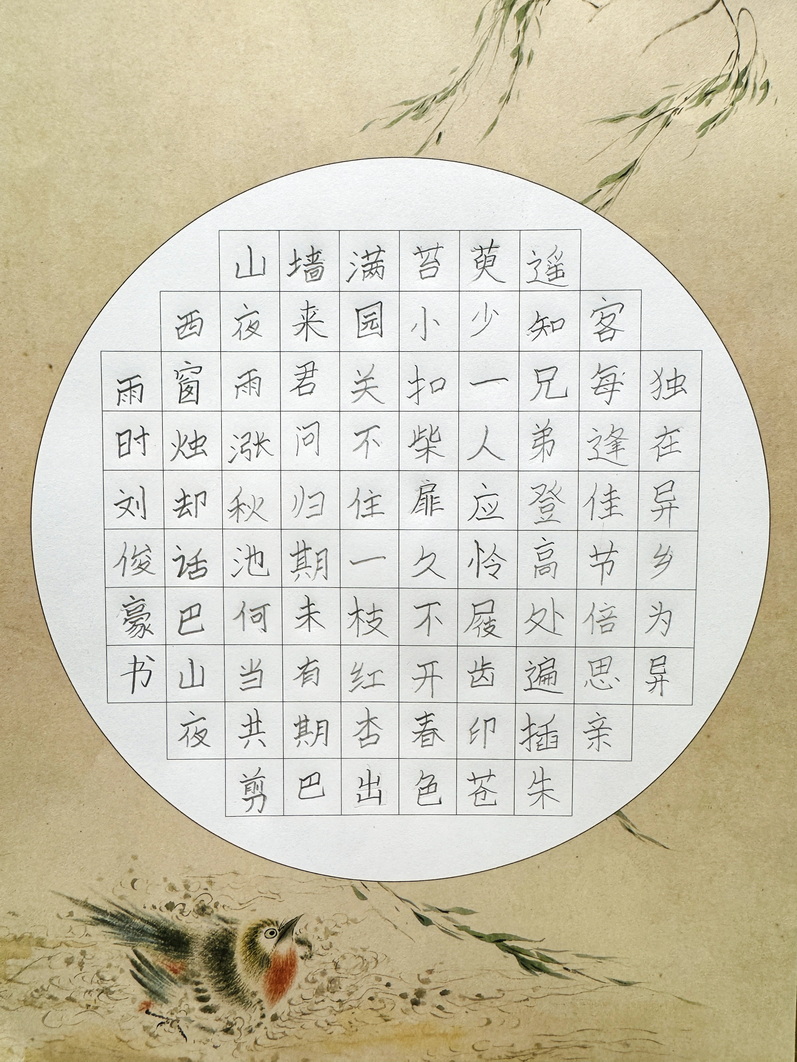 独在异乡为异
客每逢佳节倍思亲
遥知兄弟登高处遍插朱
萸少一人应怜屐齿印苍
苔小扣柴扉久不开春色
满园关不住一枝红杏出
墙来君问归期未有期巴
山夜雨涨秋池何当共剪
西窗烛却话巴山夜
雨时刘俊豪书